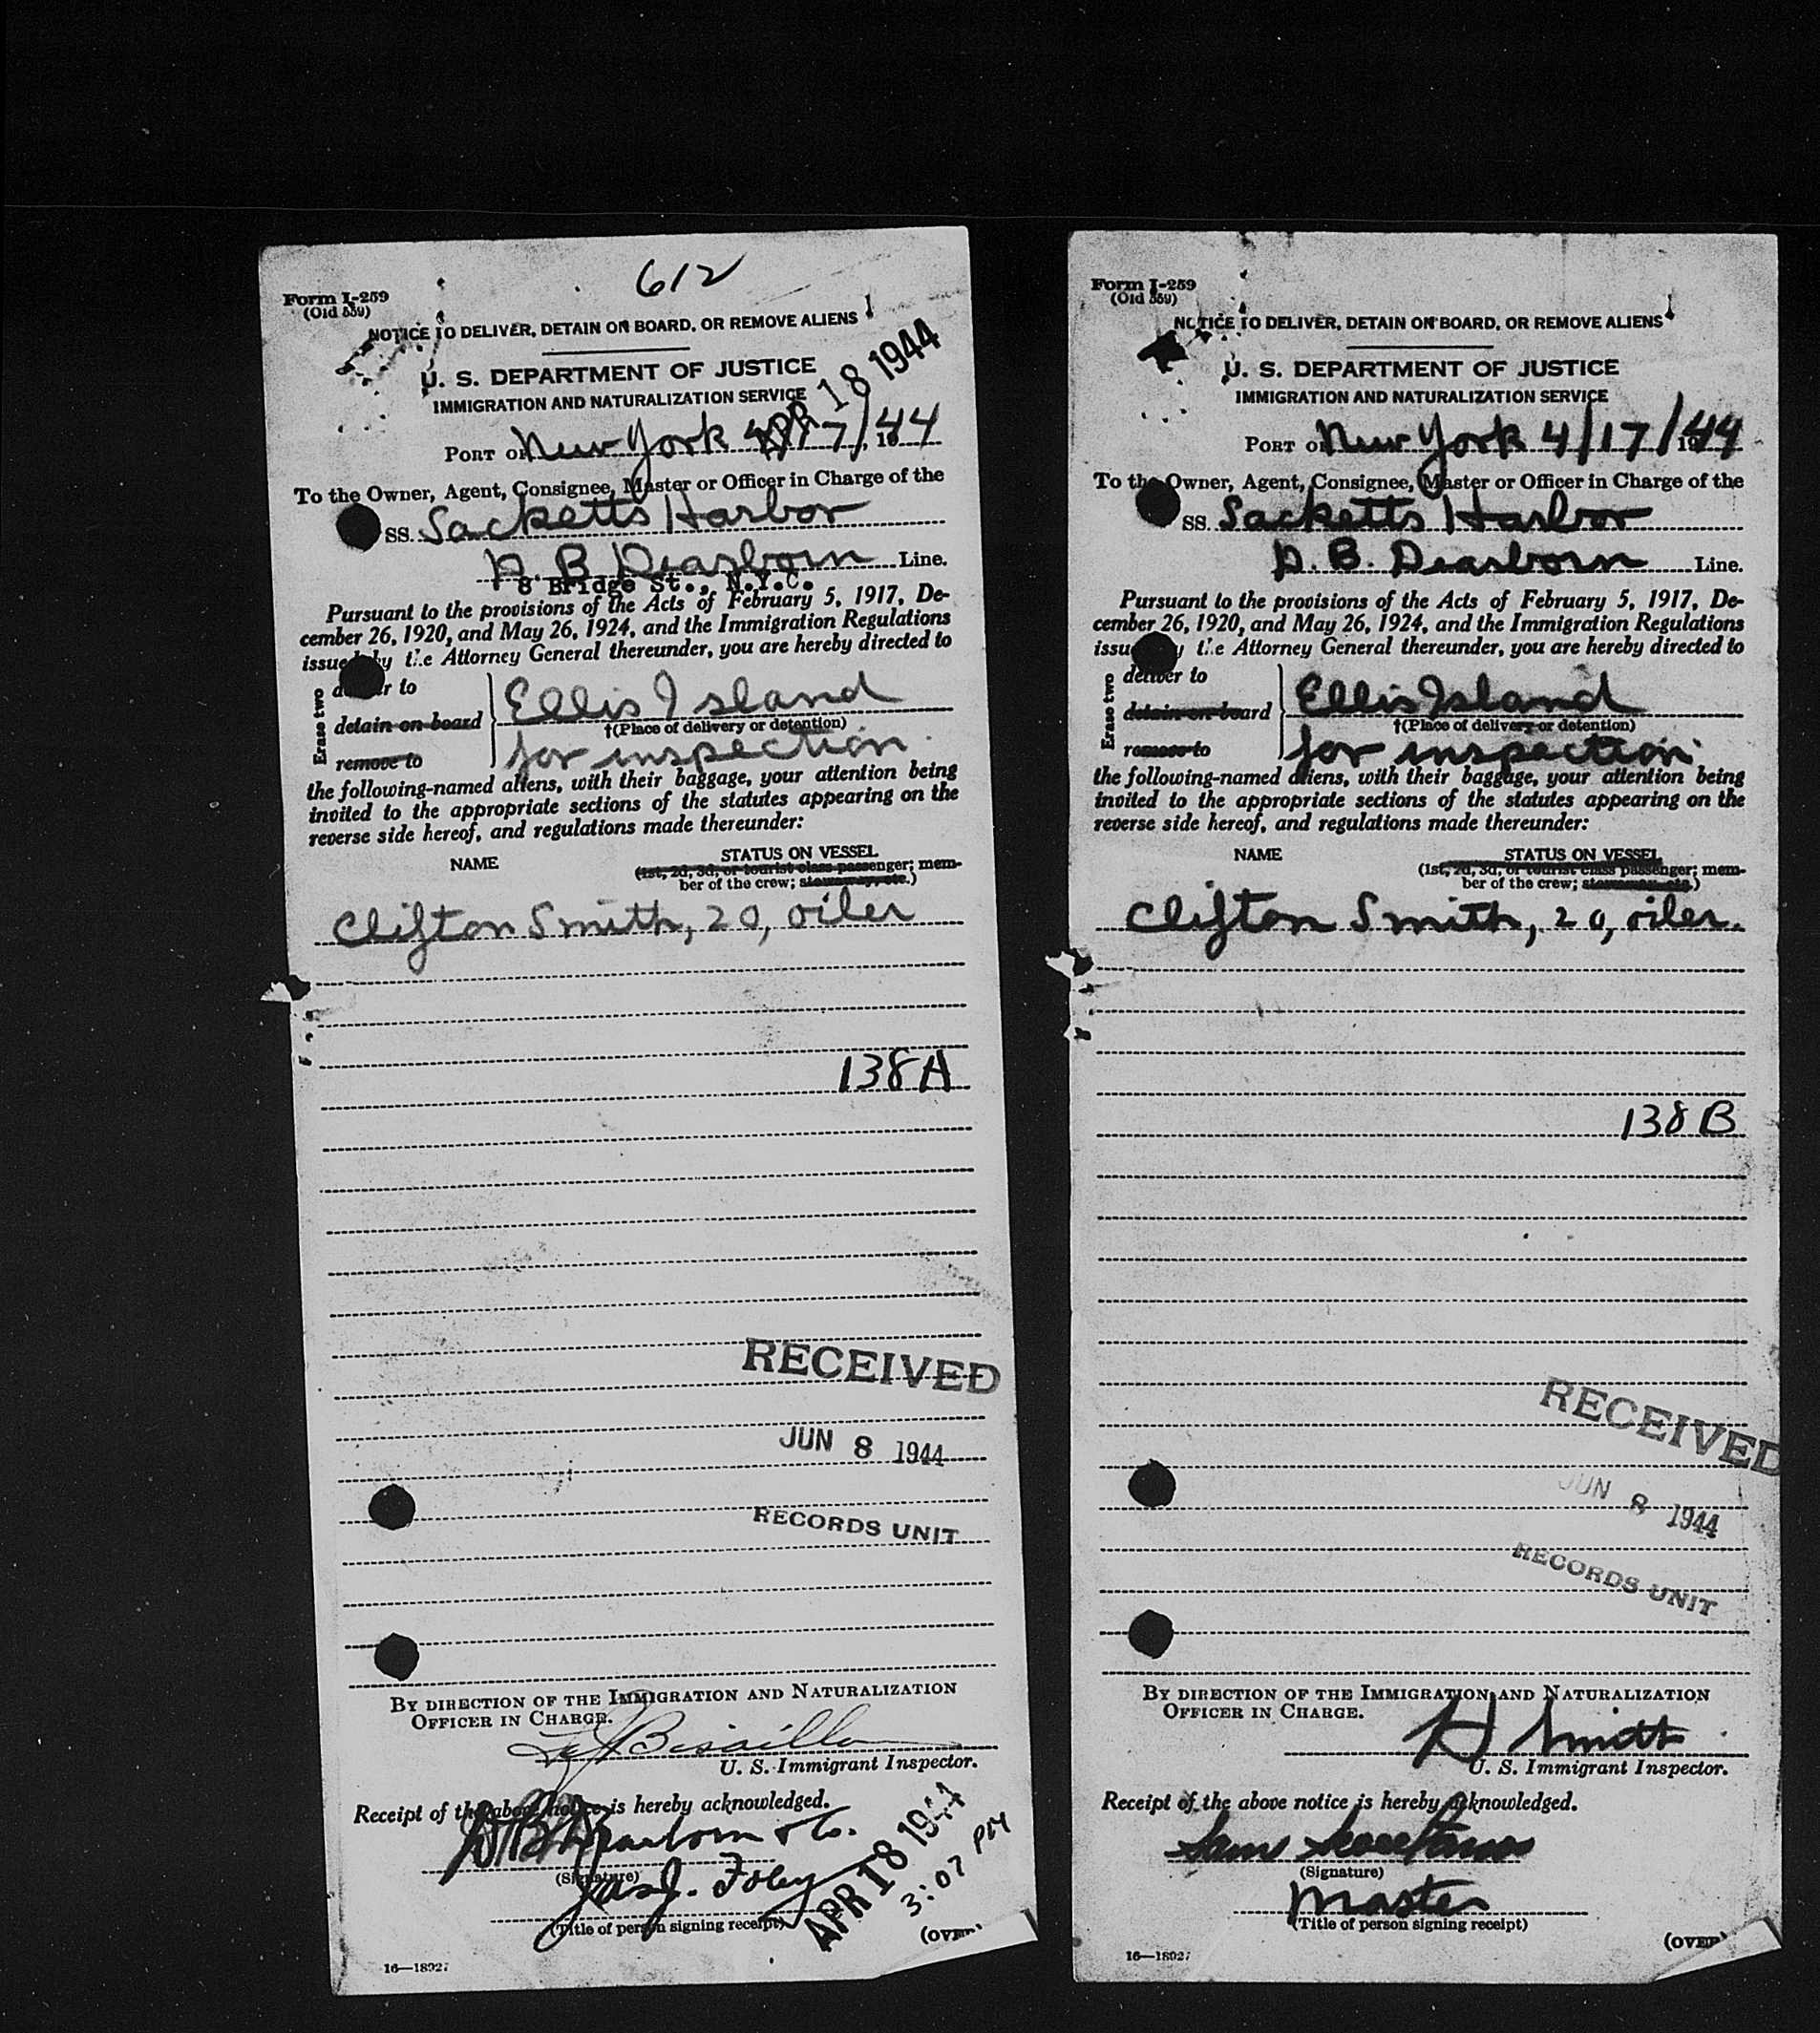 612
Form I-259
(Old 559)
NOTICE TO DELIVER, DETAIN ON BOARD, OR REMOVE ALIENS
U. S. DEPARTMENT OF JUSTICE
IMMIGRATION AND NATURALIZATION SERVICE
APR 18 1944
PORT OF New York 4/17/, 1944
To the Owner, Agent, Consignee, Master or Officer in Charge of the
SS. Sacketts Harbor
D. B. Dearborn Line.
8 Bridge St., N.Y.C.
Pursuant to the provisions of the Acts of February 5, 1917, De-
cember 26, 1920, and May 26, 1924, and the Immigration Regulations
issued by the Attorney General thereunder, you are hereby directed to
Erase two
deliver to
detain on board
remove to
Ellis Island
†(Place of delivery or detention)
for inspection.
the following-named aliens, with their baggage, your attention being
invited to the appropriate sections of the statutes appearing on the
reverse side hereof, and regulations made thereunder:
NAME
STATUS ON VESSEL
(1st, 2d, 3d, or tourist class passenger; mem-
ber of the crew; stowaway, etc.)
Clifton Smith, 20, oiler
138A
RECEIVED
JUN 8 1944
RECORDS UNIT
BY DIRECTION OF THE IMMIGRATION AND NATURALIZATION
OFFICER IN CHARGE.
U. S. Immigrant Inspector.
Receipt of the above notice is hereby acknowledged.
D B Dearborn & Co.
(Signature)
Jas J. Foley
(Title of person signing receipt)
APR 18 1944
3:07 PM
(OVER)
16—18927
Form I-259
(Old 559)
NOTICE TO DELIVER, DETAIN ON BOARD, OR REMOVE ALIENS
U. S. DEPARTMENT OF JUSTICE
IMMIGRATION AND NATURALIZATION SERVICE
PORT OF New York 4/17/1944
To the Owner, Agent, Consignee, Master or Officer in Charge of the
SS. Sacketts Harbor
D. B. Dearborn Line.
Pursuant to the provisions of the Acts of February 5, 1917, De-
cember 26, 1920, and May 26, 1924, and the Immigration Regulations
issued by the Attorney General thereunder, you are hereby directed to
Erase two
deliver to
detain on board
remove to
Ellis Island
†(Place of delivery or detention)
for inspection.
the following-named aliens, with their baggage, your attention being
invited to the appropriate sections of the statutes appearing on the
reverse side hereof, and regulations made thereunder:
NAME
STATUS ON VESSEL
(1st, 2d, 3d, or tourist class passenger; mem-
ber of the crew; stowaway, etc.)
Clifton Smith, 20, oiler.
138 B
RECEIVED
JUN 8 1944
RECORDS UNIT
BY DIRECTION OF THE IMMIGRATION AND NATURALIZATION
OFFICER IN CHARGE.
H Smith
U. S. Immigrant Inspector.
Receipt of the above notice is hereby acknowledged.
Sam
(Signature)
Master
(Title of person signing receipt)
(OVER)
16—18927